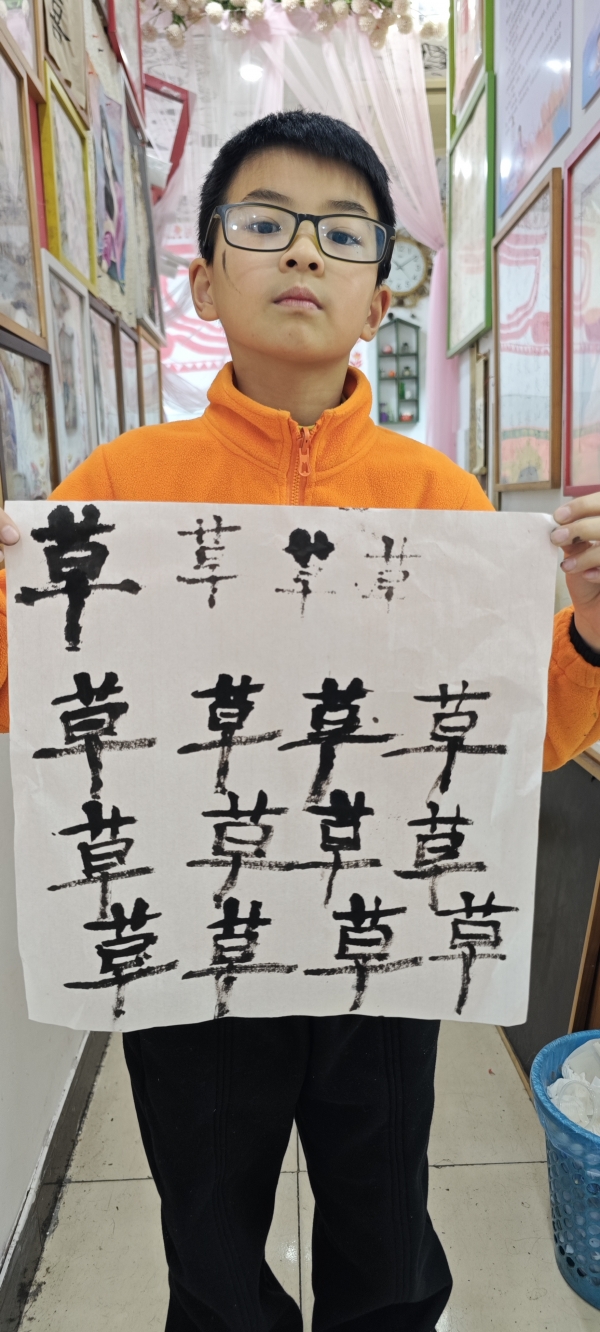 草 草 草 草
草 草 草 草
草 草 草 草
草 草 草 草